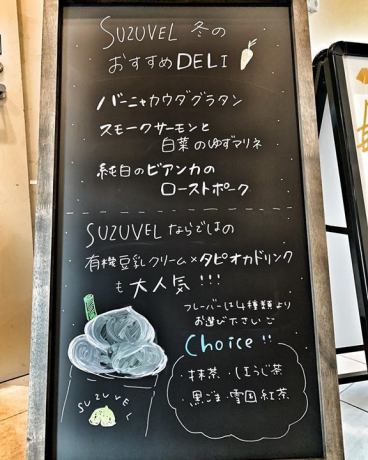 SUZUVEL 冬の
おすすめDELI
バーニャカウダグラタン
スモークサーモンと
白菜のゆずマリネ
純白のビアンカの
ローストポーク
SUZUVELならではの
有機豆乳クリーム×タピオカドリンク
も大人気!!!
フレーバーは4種類より
お選び下さい
Choice!!
・抹茶・ほうじ茶
・黒ごま・雪国紅茶
SUZUVEL